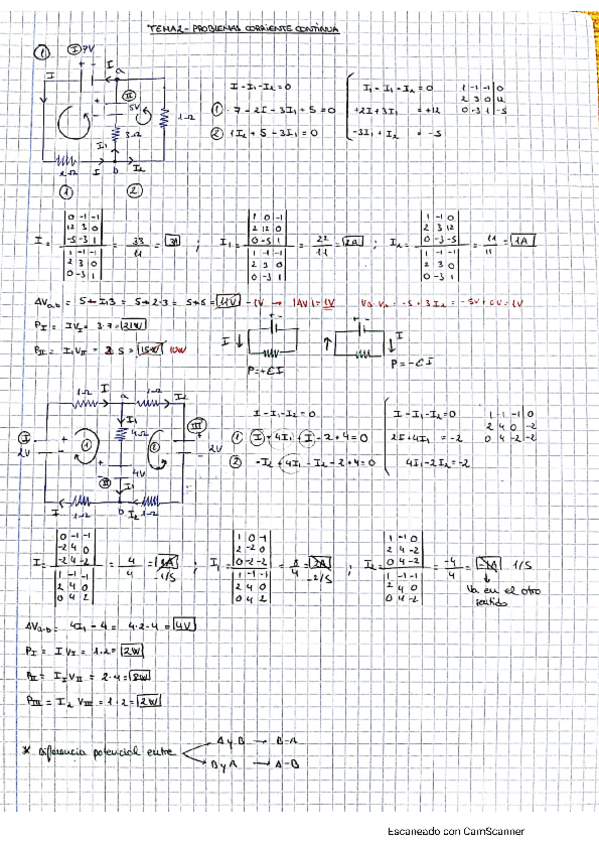 TEMA 2 - PROBLEMAS CORRIENTE CONTINUA
1 I 7V
I a
I II
5V
1Ω
3Ω
I1
2Ω I b I2
1 2
I - I1 - I2 = 0
1 - 7 - 2I - 3I1 - 5 = 0
2 1I2 + 5 - 3I1 = 0
I1 - I1 - I2 = 0
+2I + 3I1 = +12
-3I1 + I2 = -5
1 -1 -1 | 0
2 3 0 | 12
0 -3 1 | -5
I = |0 -1 -1 / 12 3 0 / -5 -3 1| / |1 -1 -1 / 2 3 0 / 0 -3 1| = 33/11 = 3A ; I1 = |1 0 -1 / 2 12 0 / 0 -5 1| / |1 -1 -1 / 2 3 0 / 0 -3 1| = 22/11 = 2A ; I2 = |1 -1 0 / 2 3 12 / 0 -3 -5| / |1 -1 -1 / 2 3 0 / 0 -3 1| = 11/11 = 1A
ΔVa,b = 5 + I1 3 = 5 + 2·3 = 5 + 6 = 11V -1V → |ΔV| = 1V
PI = I VI = 3·7 = 21W
PII = I1 VII = 2·5 = 15W 10W
I
P = +ƐI
I
P = -ƐI
1Ω I a 1Ω I2
I1
4Ω
I
2V
1 2
III
2V
4V
II I1
I 1Ω b I2 1Ω
I - I1 - I2 = 0
1 I + 4I1 + I - 2 + 4 = 0
2 -I2 + 4I1 - I2 - 2 + 4 = 0
I - I1 - I2 = 0
2I + 4I1 = -2
4I1 - 2I2 = -2
1 -1 -1 0
2 4 0 -2
0 4 -2 -2
I = |0 -1 -1 / -2 4 0 / -2 4 -2| / |1 -1 -1 / 2 4 0 / 0 4 2| = 4/4 = 1A -1/5 ; I1 = |1 0 -1 / 2 -2 0 / 0 -2 -2| / |1 -1 -1 / 2 4 0 / 0 4 2| = 8/4 = 2A -2/5 ; I2 = |1 -1 0 / 2 4 -2 / 0 4 -2| / |1 -1 -1 / 2 4 0 / 0 4 -2| = -4/4 = -1A 1/5
Va en el otro
sentido
ΔVa-b = 4I1 - 4 = 4·2 - 4 = 4V
PI = I VI = 1·2 = 2W
PII = I1 VII = 2·4 = 8W
PIII = I2 VIII = 1·2 = 2W
* Diferencia potencial entre
A y B → B-A
B y A → A-B
Escaneado con CamScanner